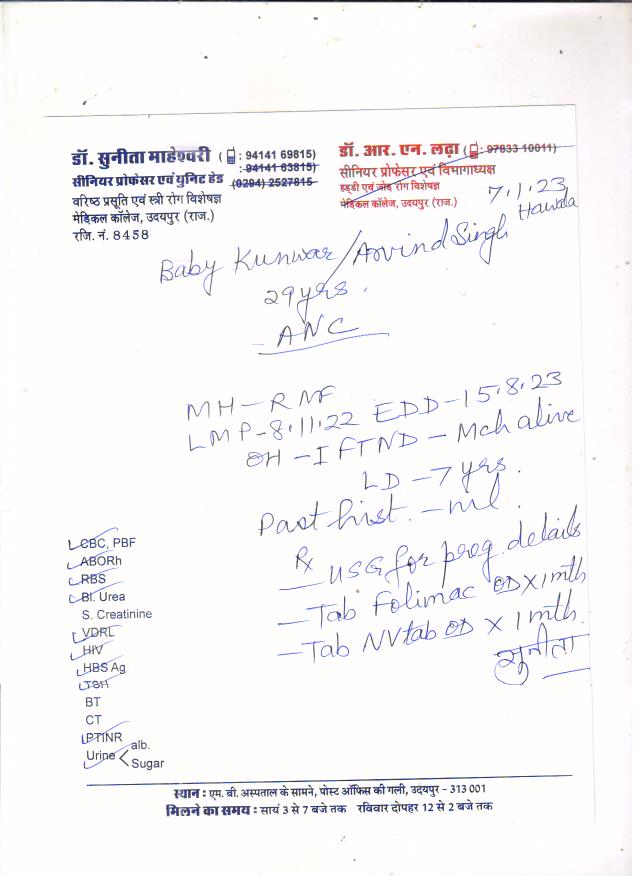 डॉ. सुनीता माहेश्वरी ( : 94141 69815)
: 94141 63815)
सीनियर प्रोफेसर एवं युनिट हेड (0294) 2527815
वरिष्ठ प्रसूति एवं स्त्री रोग विशेषज्ञ
मेडिकल कॉलेज, उदयपुर (राज.)
रजि. नं. 8458
डॉ. आर. एन. लढ़ा ( : 97833 10011)
सीनियर प्रोफेसर एवं विभागाध्यक्ष
हड्डी एवं जोड़ रोग विशेषज्ञ
मेडिकल कॉलेज, उदयपुर (राज.)
7.1.23
Hawala
Baby Kunwar/Arvind Singh
29 yrs.
- ANC
MH - RMF
LMP - 8.11.22 EDD - 15.8.23
OH - I FTND - Mch alive
LD - 7 yrs.
Past hist. - nil.
Rx
- USG for preg. details
- Tab Folimac OD X 1 mth
- Tab NV tab OD X 1 mth.
सुनीता
CBC, PBF
ABORh
RBS
Bl. Urea
S. Creatinine
VDRL
HIV
HBS Ag
TSH
BT
CT
PTINR
Urine < alb.
Sugar
स्थान : एम. बी. अस्पताल के सामने, पोस्ट ऑफिस की गली, उदयपुर - 313 001
मिलने का समय : सायं 3 से 7 बजे तक रविवार दोपहर 12 से 2 बजे तक